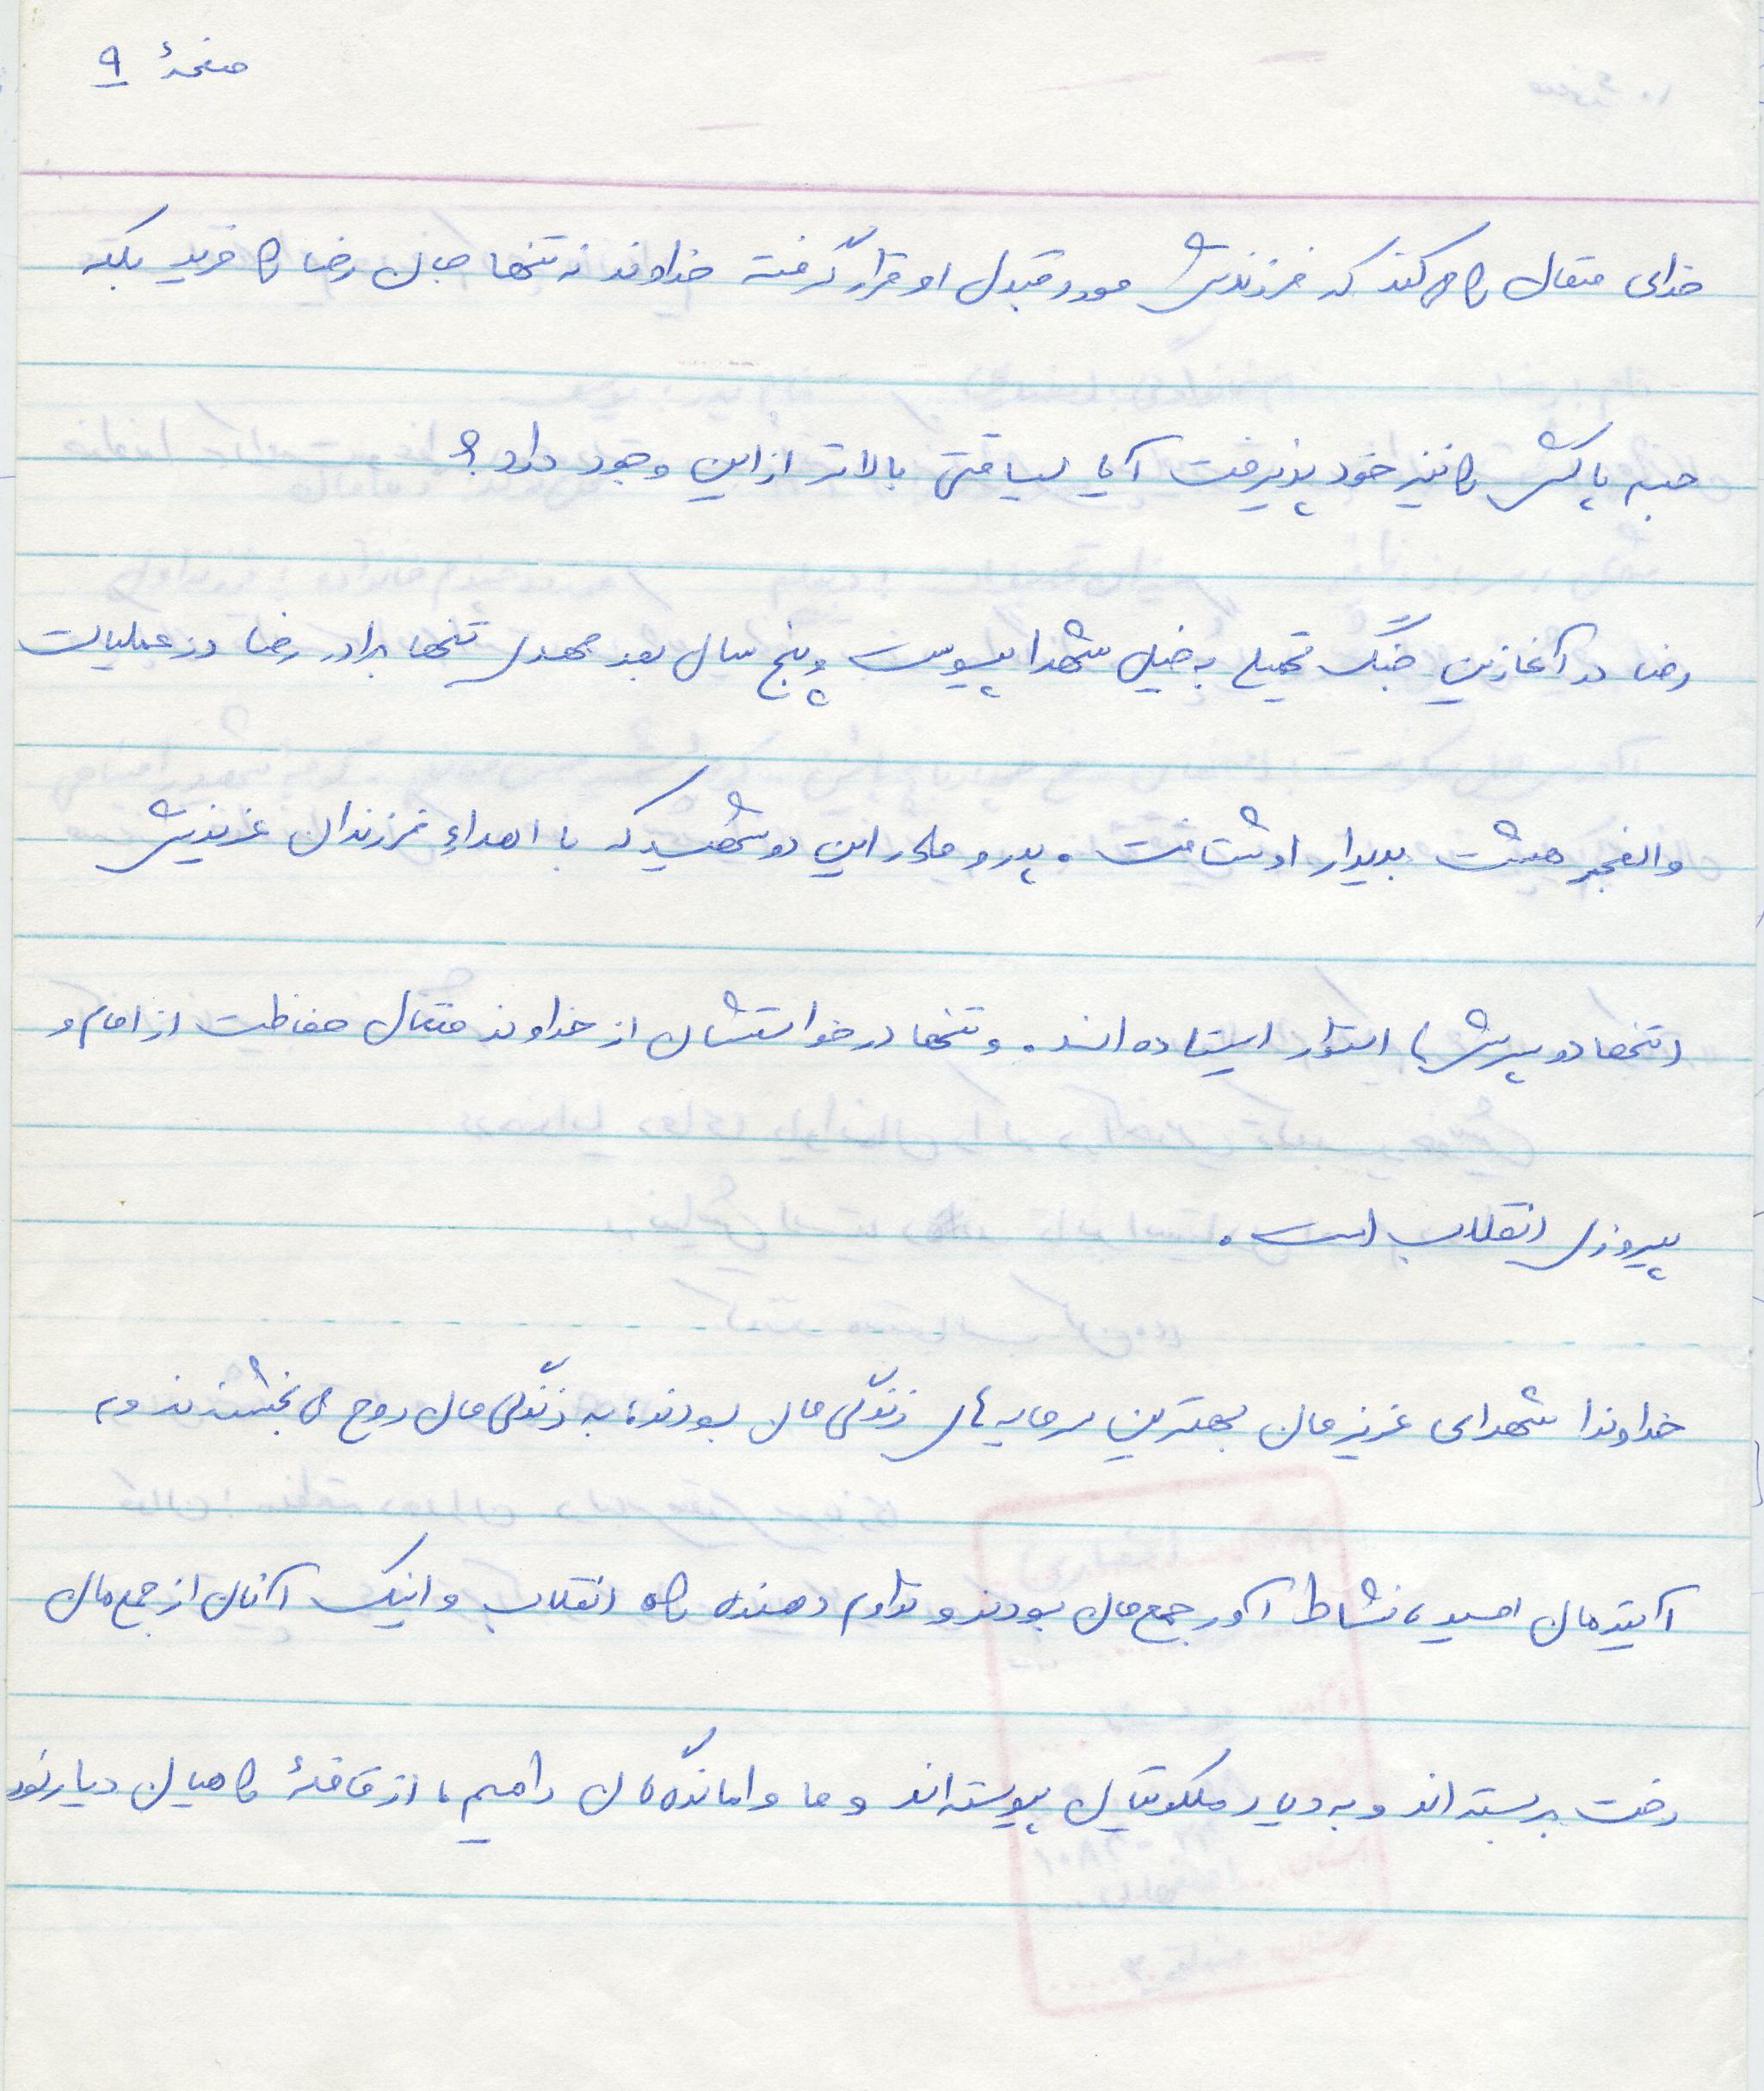 صفحهٔ ۹
خدای متعال را شکر کند که فرزندش مورد قبول او قرار گرفته خداوند نه تنها جان رضا را خرید بلکه
جسم پاکش را نیز خود پذیرفت آیا لیاقتی بالاتر از این وجود دارد؟
رضا در آغازین جنگ تحمیلی به خیل شهدا پیوست و پنج سال بعد مهدی تنها برادر رضا در عملیات
والفجر هشت بدیدار او شتافت. پدر و مادر این دو شهید که با اهداءِ فرزندان عزیزش
(تنها دو پسرش) استوار ایستاده‌اند. و تنها درخواستشان از خداوند متعال حفاظت از امام و
پیروزی انقلاب است.
خداوندا شهدای عزیزمان بهترین سرمایه‌های زندگی‌مان بودند، به زندگی‌مان روح می‌بخشیدند و به
آینده‌مان امید، نشاط آور جمع‌مان بودند و تداوم دهنده راه انقلاب و اینک آنان از جمع‌مان
رخت بربسته‌اند و به دیار ملکوتیان پیوسته‌اند و ما واماندگان راهیم، از قافلهٔ راهیان دیار نور